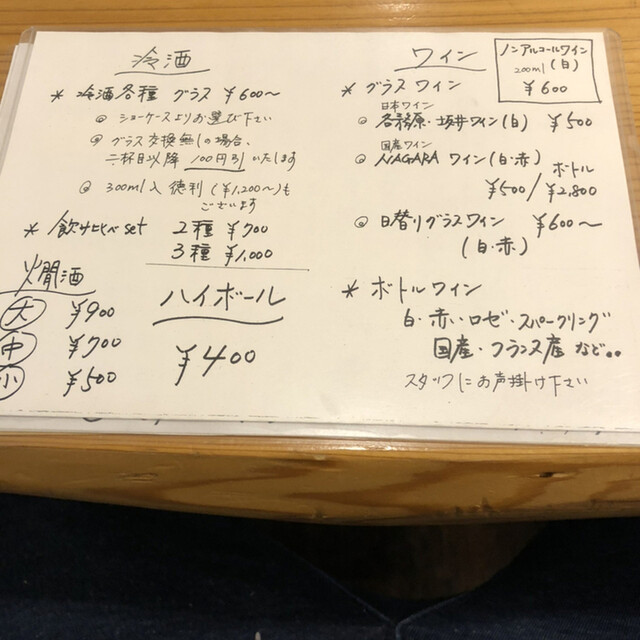 冷酒
* 冷酒各種 グラス ¥600〜
◎ ショーケースよりお選び下さい
◎ グラス交換無しの場合、
二杯目以降 100円引いたします
◎ 300ml入 徳利 (¥1,200〜)も
ございます
* 飲み比べset 2種 ¥700
3種 ¥1,000
燗酒
大 ¥900
中 ¥700
小 ¥500
ハイボール
¥400
ワイン
ノンアルコールワイン
200ml (白)
¥600
* グラス ワイン
日本ワイン
◎ 各務原・坂井ワイン(白) ¥500
国産ワイン
◎ NAGARA ワイン (白・赤)
ボトル
¥500/¥2,800
◎ 日替りグラスワイン ¥600〜
(白・赤)
* ボトルワイン
白・赤・ロゼ・スパークリング
国産・フランス産 など。。
スタッフにお声掛け下さい